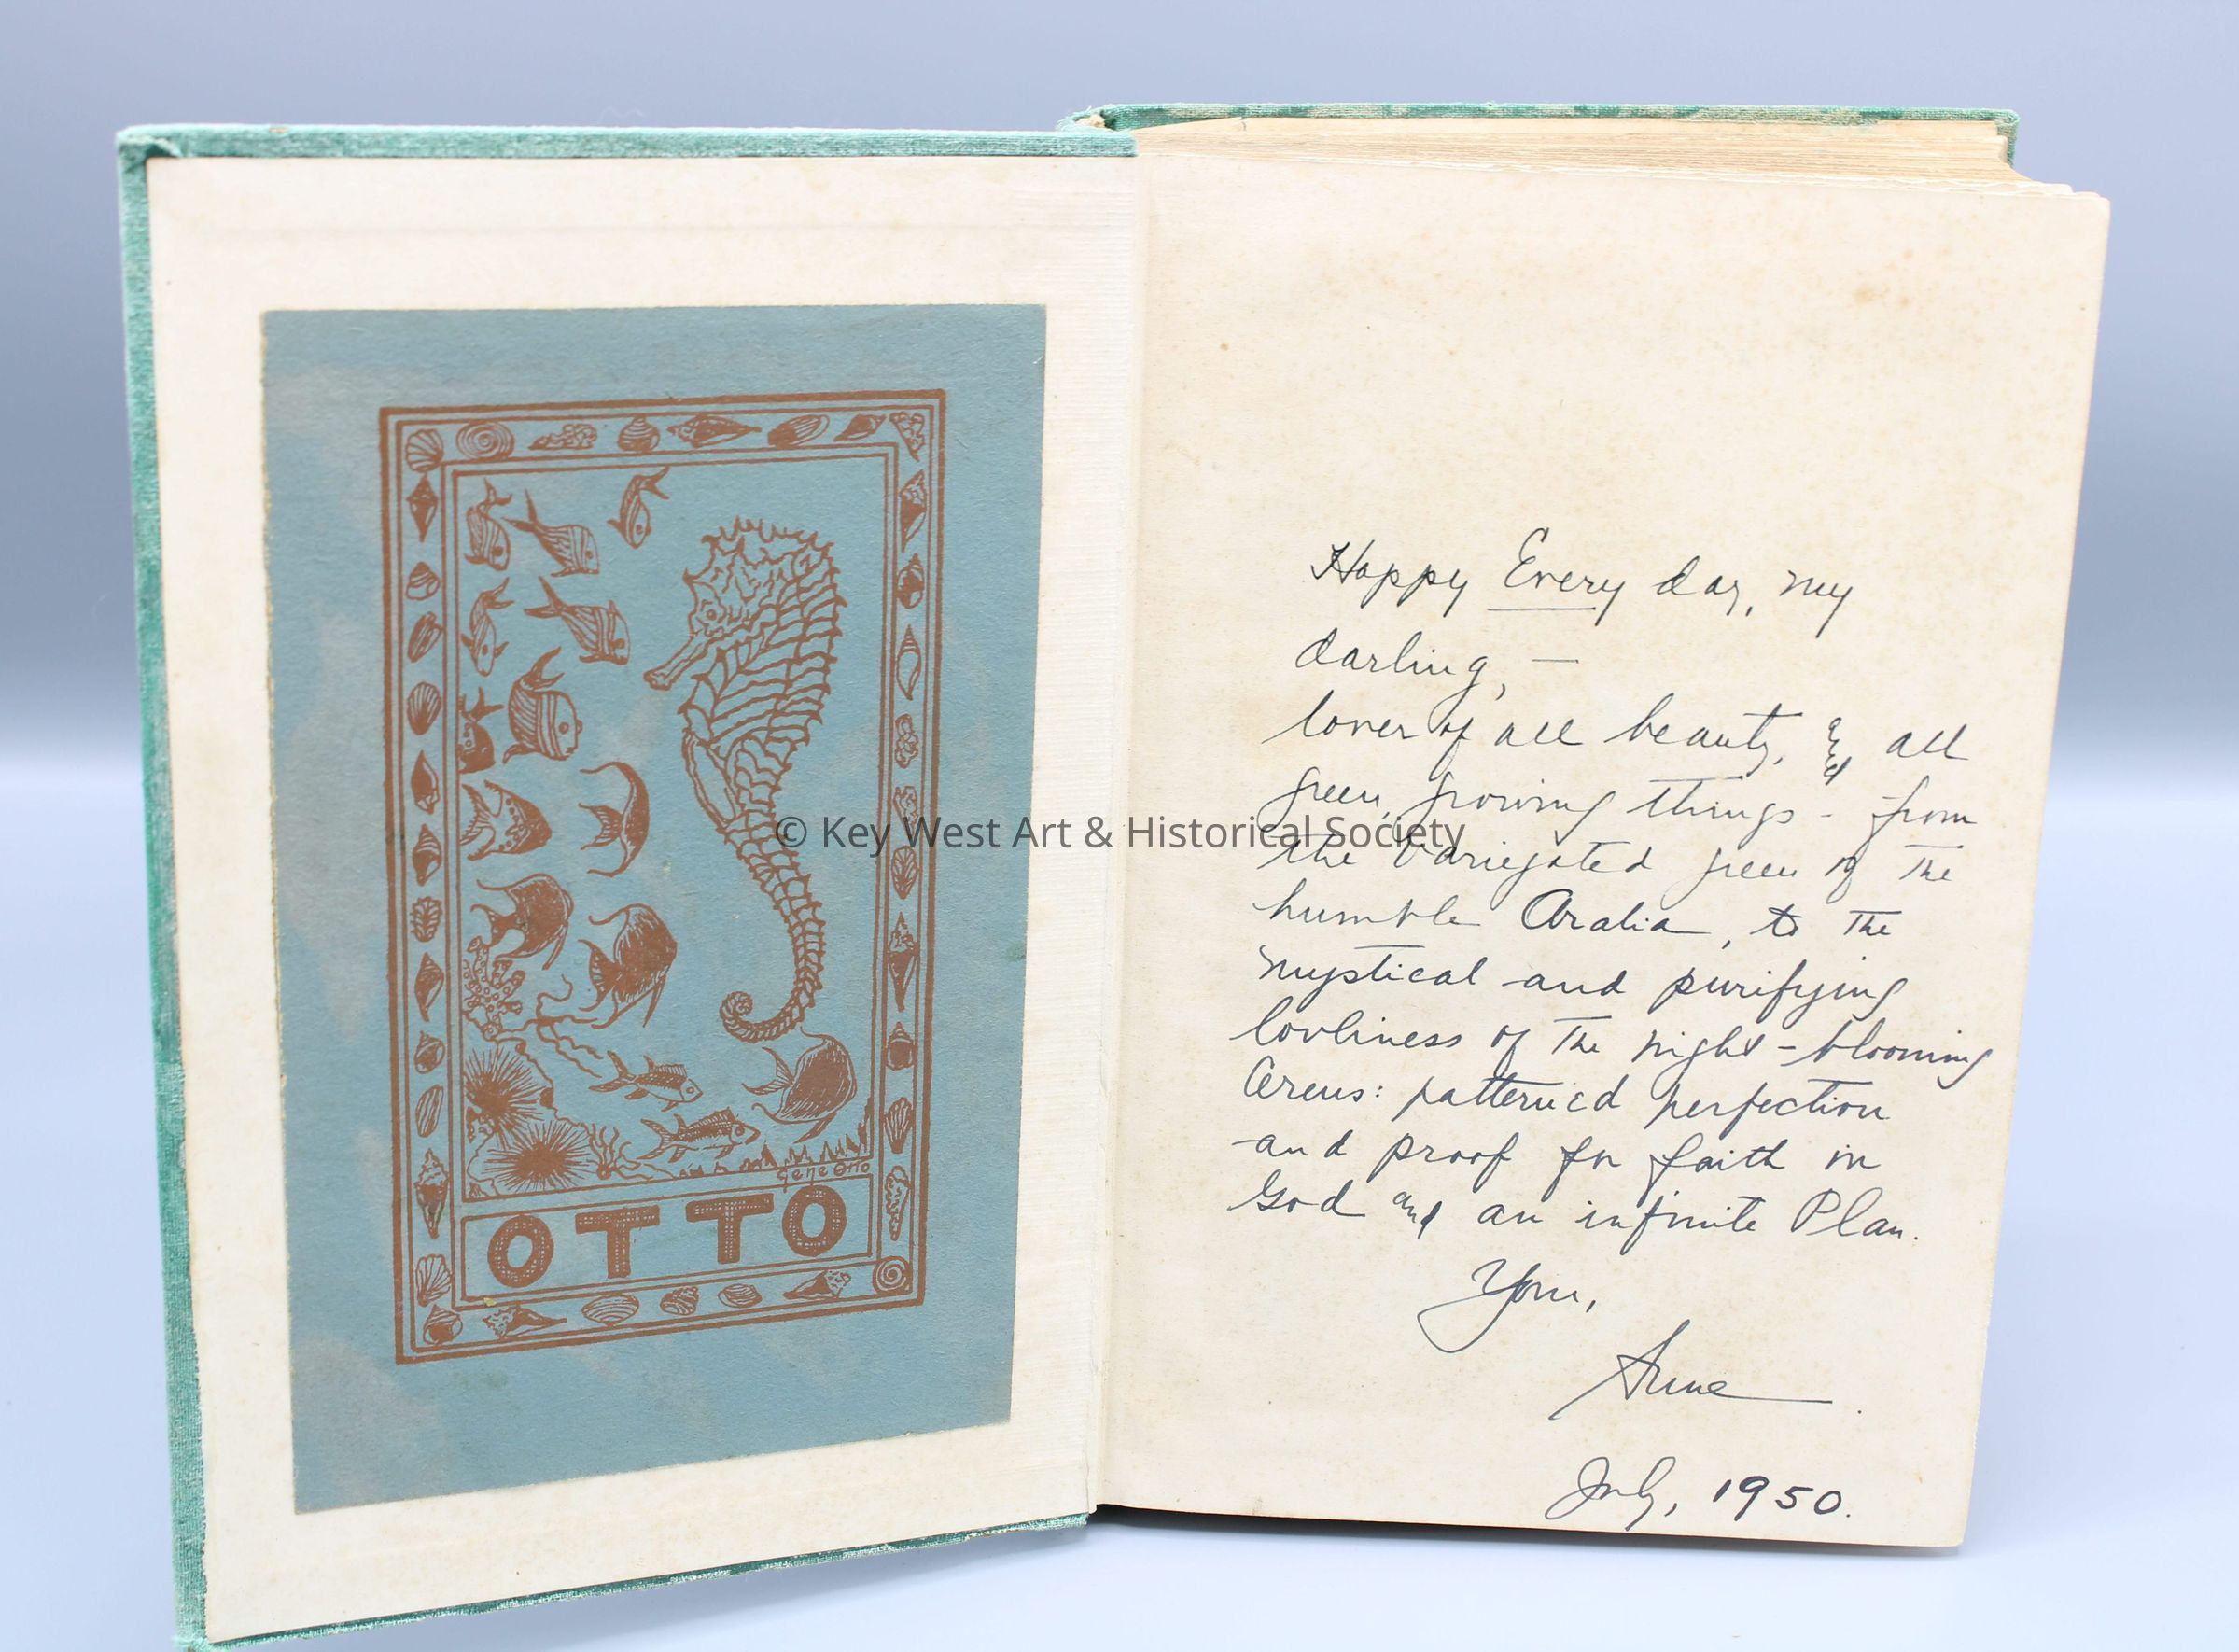 Gene Otto
OTTO
Happy Every day, my
darling, —
lover of all beauty, and all
green, growing things - from
the variegated green of the
humble Aralia, to the
mystical and purifying
lovliness of the night-blooming
Cereus: patterned perfection
and proof for faith in
God and an infinite Plan.
Your,
Anne
July, 1950.
© Key West Art & Historical Society